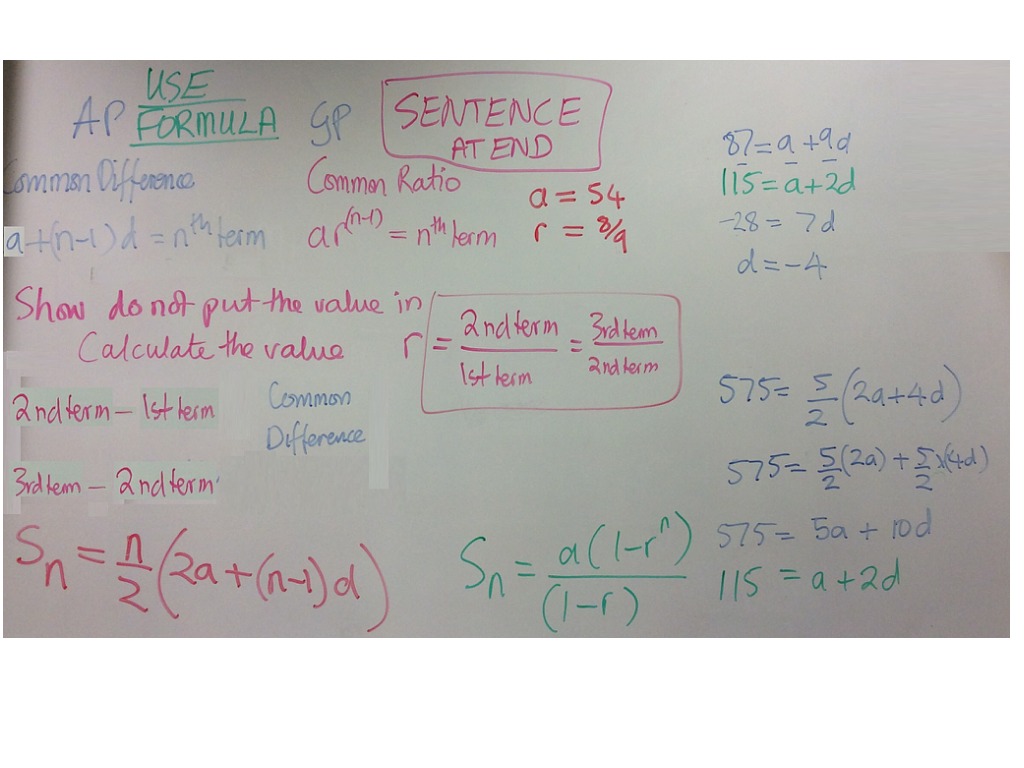 USE
AP FORMULA GP
SENTENCE
AT END
Common Difference
Common Ratio
a+(n-1)d = nᵗʰ term
ar⁽ⁿ⁻¹⁾ = nᵗʰ term
a = 54
r = 8/9
Show do not put the value in
Calculate the value
r = 2nd term / 1st term = 3rd term / 2nd term
2nd term - 1st term
Common
Difference
3rd term - 2nd term
Sₙ = n/2 (2a+(n-1)d)
Sₙ = a(1-rⁿ) / (1-r)
87 = a + 9d
115 = a + 2d
-28 = 7d
d = -4
575 = 5/2 (2a+4d)
575 = 5/2 (2a) + 5/2 x(4d)
575 = 5a + 10d
115 = a + 2d